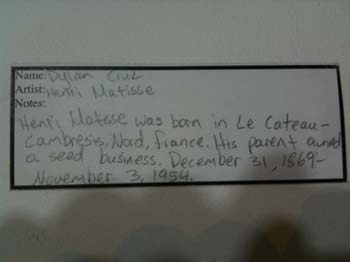 Name: Dylan Cruz
Artist: Henri Matisse
Notes:
Henri Matisse was born in Le Cateau-
Cambresis, Nord, France. His parent owned
a seed business. December 31, 1869-
November 3, 1954.